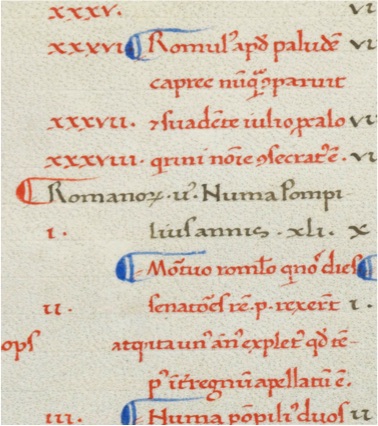 xxxv. vi
xxxvi Romul' apđ paludē vi
capree nūq̄ ꝯparuit
xxxvii. ⁊ suadēte iulio ꝓculo vi
xxxviii. qrini noīe ꝯsecrat' ē. vi
Romanoꝝ .ii'. Numa Pompi-
i. lius annis .xli. x
Mōtuo romlo qno dies
ii. senatoēs rē. p. rexer̄t i.
ops atq̢ ita un' an' explet' qđ tē-
p' īt'regnū apellatū ē.
iii. Numa pōpili' duos ii